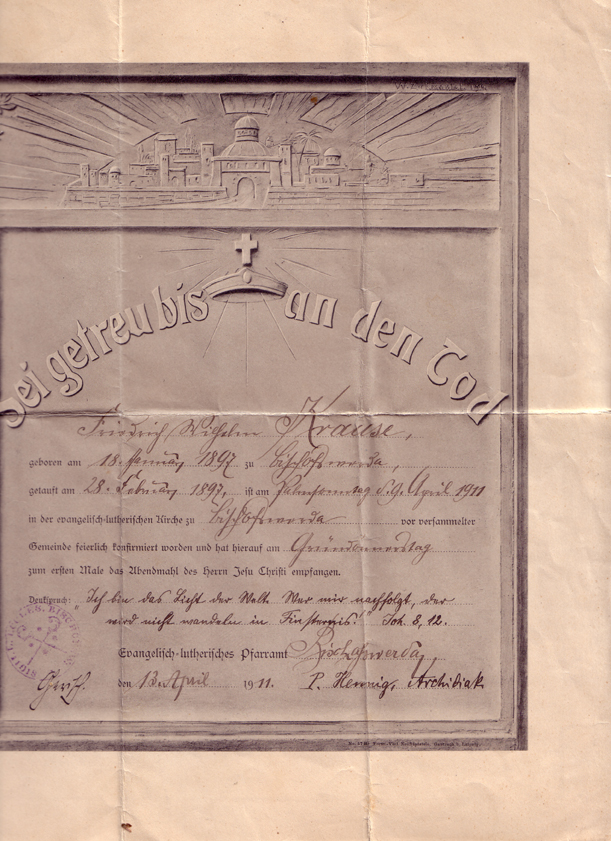 Sei getreu bis an den Tod
Friedrich Wilhelm Krause,
geboren am 18. Januar 1897 zu Bischofswerda,
getauft am 28. Februar 1897, ist am Palmsonntag d. 9. April 1911
in der evangelisch-lutherischen Kirche zu Bischofswerda vor versammelter
Gemeinde feierlich konfirmiert worden und hat hierauf am Gründonnerstag
zum ersten Male das Abendmahl des Herrn Jesu Christi empfangen.
Denkspruch: "Ich bin das Licht der Welt. Wer mir nachfolgt, der
wird nicht wandeln in Finsternis!" Joh. 8, 12.
Evangelisch-lutherisches Pfarramt Bischofswerda,
den 13. April 1911. P. Hennig, Archidiak.